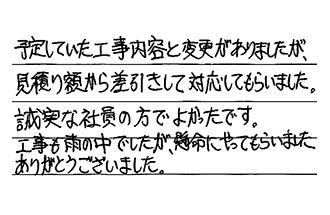 予定していた工事内容と変更がありましたが、
見積り額から差引きして対応してもらいました。
誠実な社員の方でよかったです。
工事も雨の中でしたが、懸命にやってもらいました
ありがとうございました。